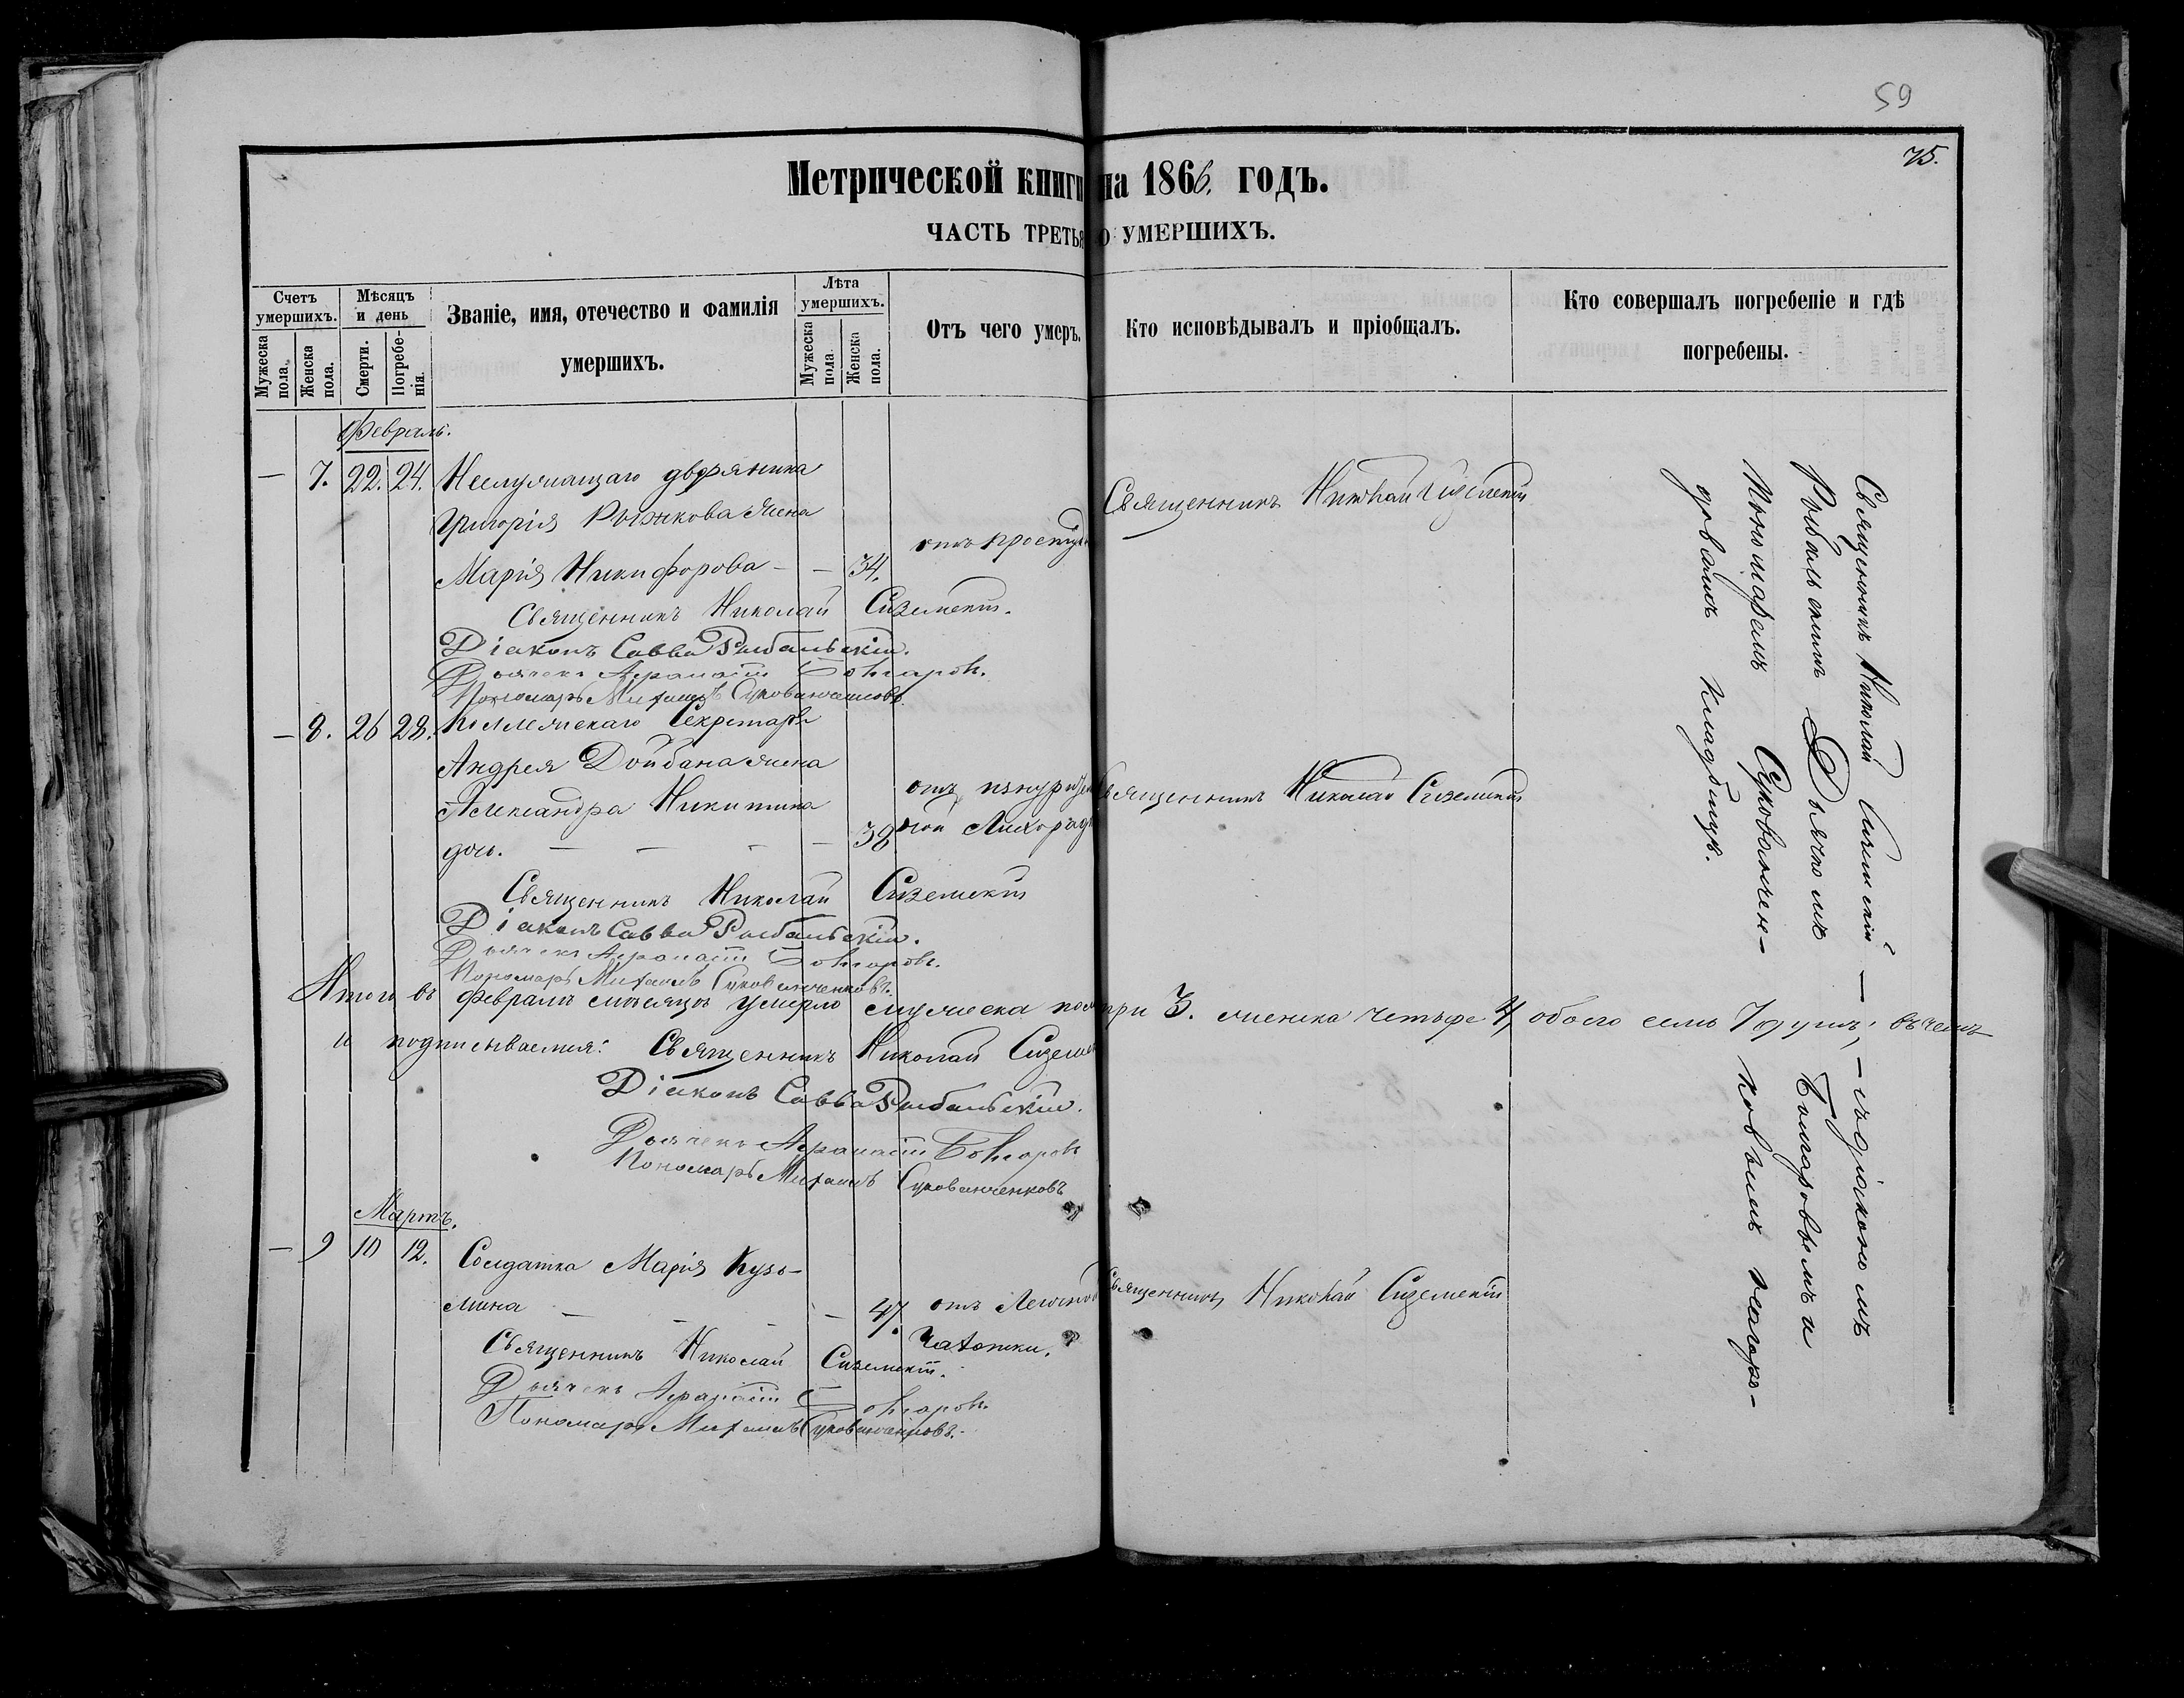 59
75.
Метрической книги на 1866. годъ.
ЧАСТЬ ТРЕТЬЯ О УМЕРШИХЪ.
Счетъ умершихъ.
Мужеска пола.
Женска пола.
Мѣсяцъ и день
Смерти.
Погребенія.
Званіе, имя, отечество и фамилія
умершихъ.
Лѣта умершихъ.
Мужеска пола.
Женска пола.
Отъ чего умеръ.
Кто исповѣдывалъ и пріобщалъ.
Кто совершалъ погребеніе и гдѣ
погребены.
Февраль.
— 7. 22. 24. Неслужащаго дворянина
Григорія Рыжкова жена
Марія Никифорова - — 34.
отъ простуды
Священникъ Николай Сиземскій
Священникъ Николай Сиземскій.
Діаконъ Савва Рыбальскій.
Дьячекъ Афанасій Болгаровъ.
Пономарь Михаилъ Сукованченковъ.
— 8. 26 28. Коллежскаго Секретаря
Андрея Дойбана жена
Александра Никитина
дочь. — — - — 38
отъ изнуритель
ной Лихорад
Священникъ Николай Сиземскій
Священникъ Николай Сиземскій
Діаконъ Савва Рыбальскій.
Дьячекъ Афанасій Болгаровъ.
Пономарь Михаилъ Сукованченковъ.
Итого въ февралѣ мѣсяцѣ умерло мужеска пола три 3. женска четыре 4, обоего семь 7 душъ, въ чемъ
и подписываемся: Священникъ Николай Сиземск
Діаконъ Савва Рыбальскій.
Дьячекъ Афанасій Болгаровъ
Пономарь Михаилъ Сукованченковъ
Мартъ.
— 9 10 12. Солдатка Марія Кузь-
мина — - - — 47.
отъ Легочной
Чахотки.
Священникъ Николай Сиземскій
Священникъ Николай Сиземскій.
Дьячекъ Афанасій Болгаровъ.
Пономарь Михаилъ Сукованченковъ.
Священникъ Николай Сиземскій — съ Діакономъ
Рыбальскимъ Дьячкомъ Болгаровымъ и
Пономаремъ Сукованчен-
ковымъ на
кладбищѣ.